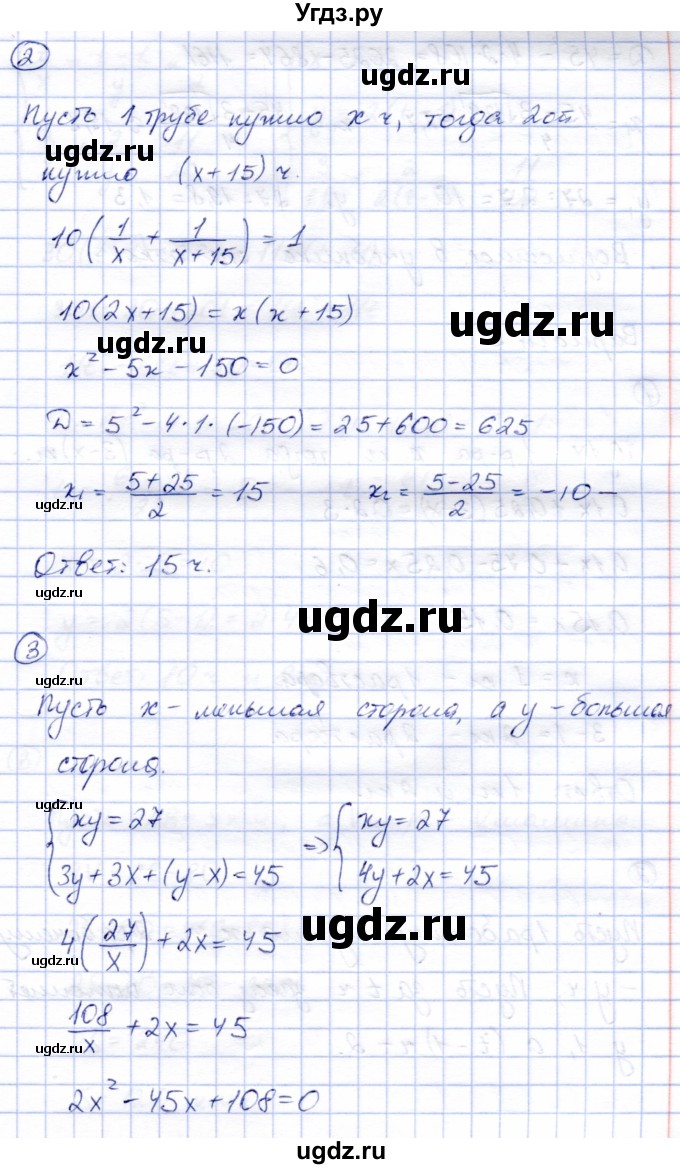 Угдз.ру
ugdz.ru
2
Пусть 1 трубе нужно x ч, тогда 2ой
ugdz.ru
нужно (x+15) ч.
ugdz.ru
10(1/x + 1/(x+15)) = 1
10(2x+15) = x(x+15)
ugdz.ru
ugdz.ru
x² - 5x - 150 = 0
D = 5² - 4·1·(-150) = 25+600 = 625
x₁ = (5+25)/2 = 15 x₂ = (5-25)/2 = -10 -
ugdz.ru
ugdz.ru
Ответ: 15 ч.
ugdz.ru
ugdz.ru
3
ugdz.ru
Пусть x - меньшая сторона, а y - большая
сторона.
ugdz.ru
{xy = 27 => {xy = 27
3y+3x+(y-x)=45 4y+2x=45
ugdz.ru
4(27/x) + 2x = 45
ugdz.ru
108/x + 2x = 45
ugdz.ru
2x² - 45x + 108 = 0
ugdz.ru